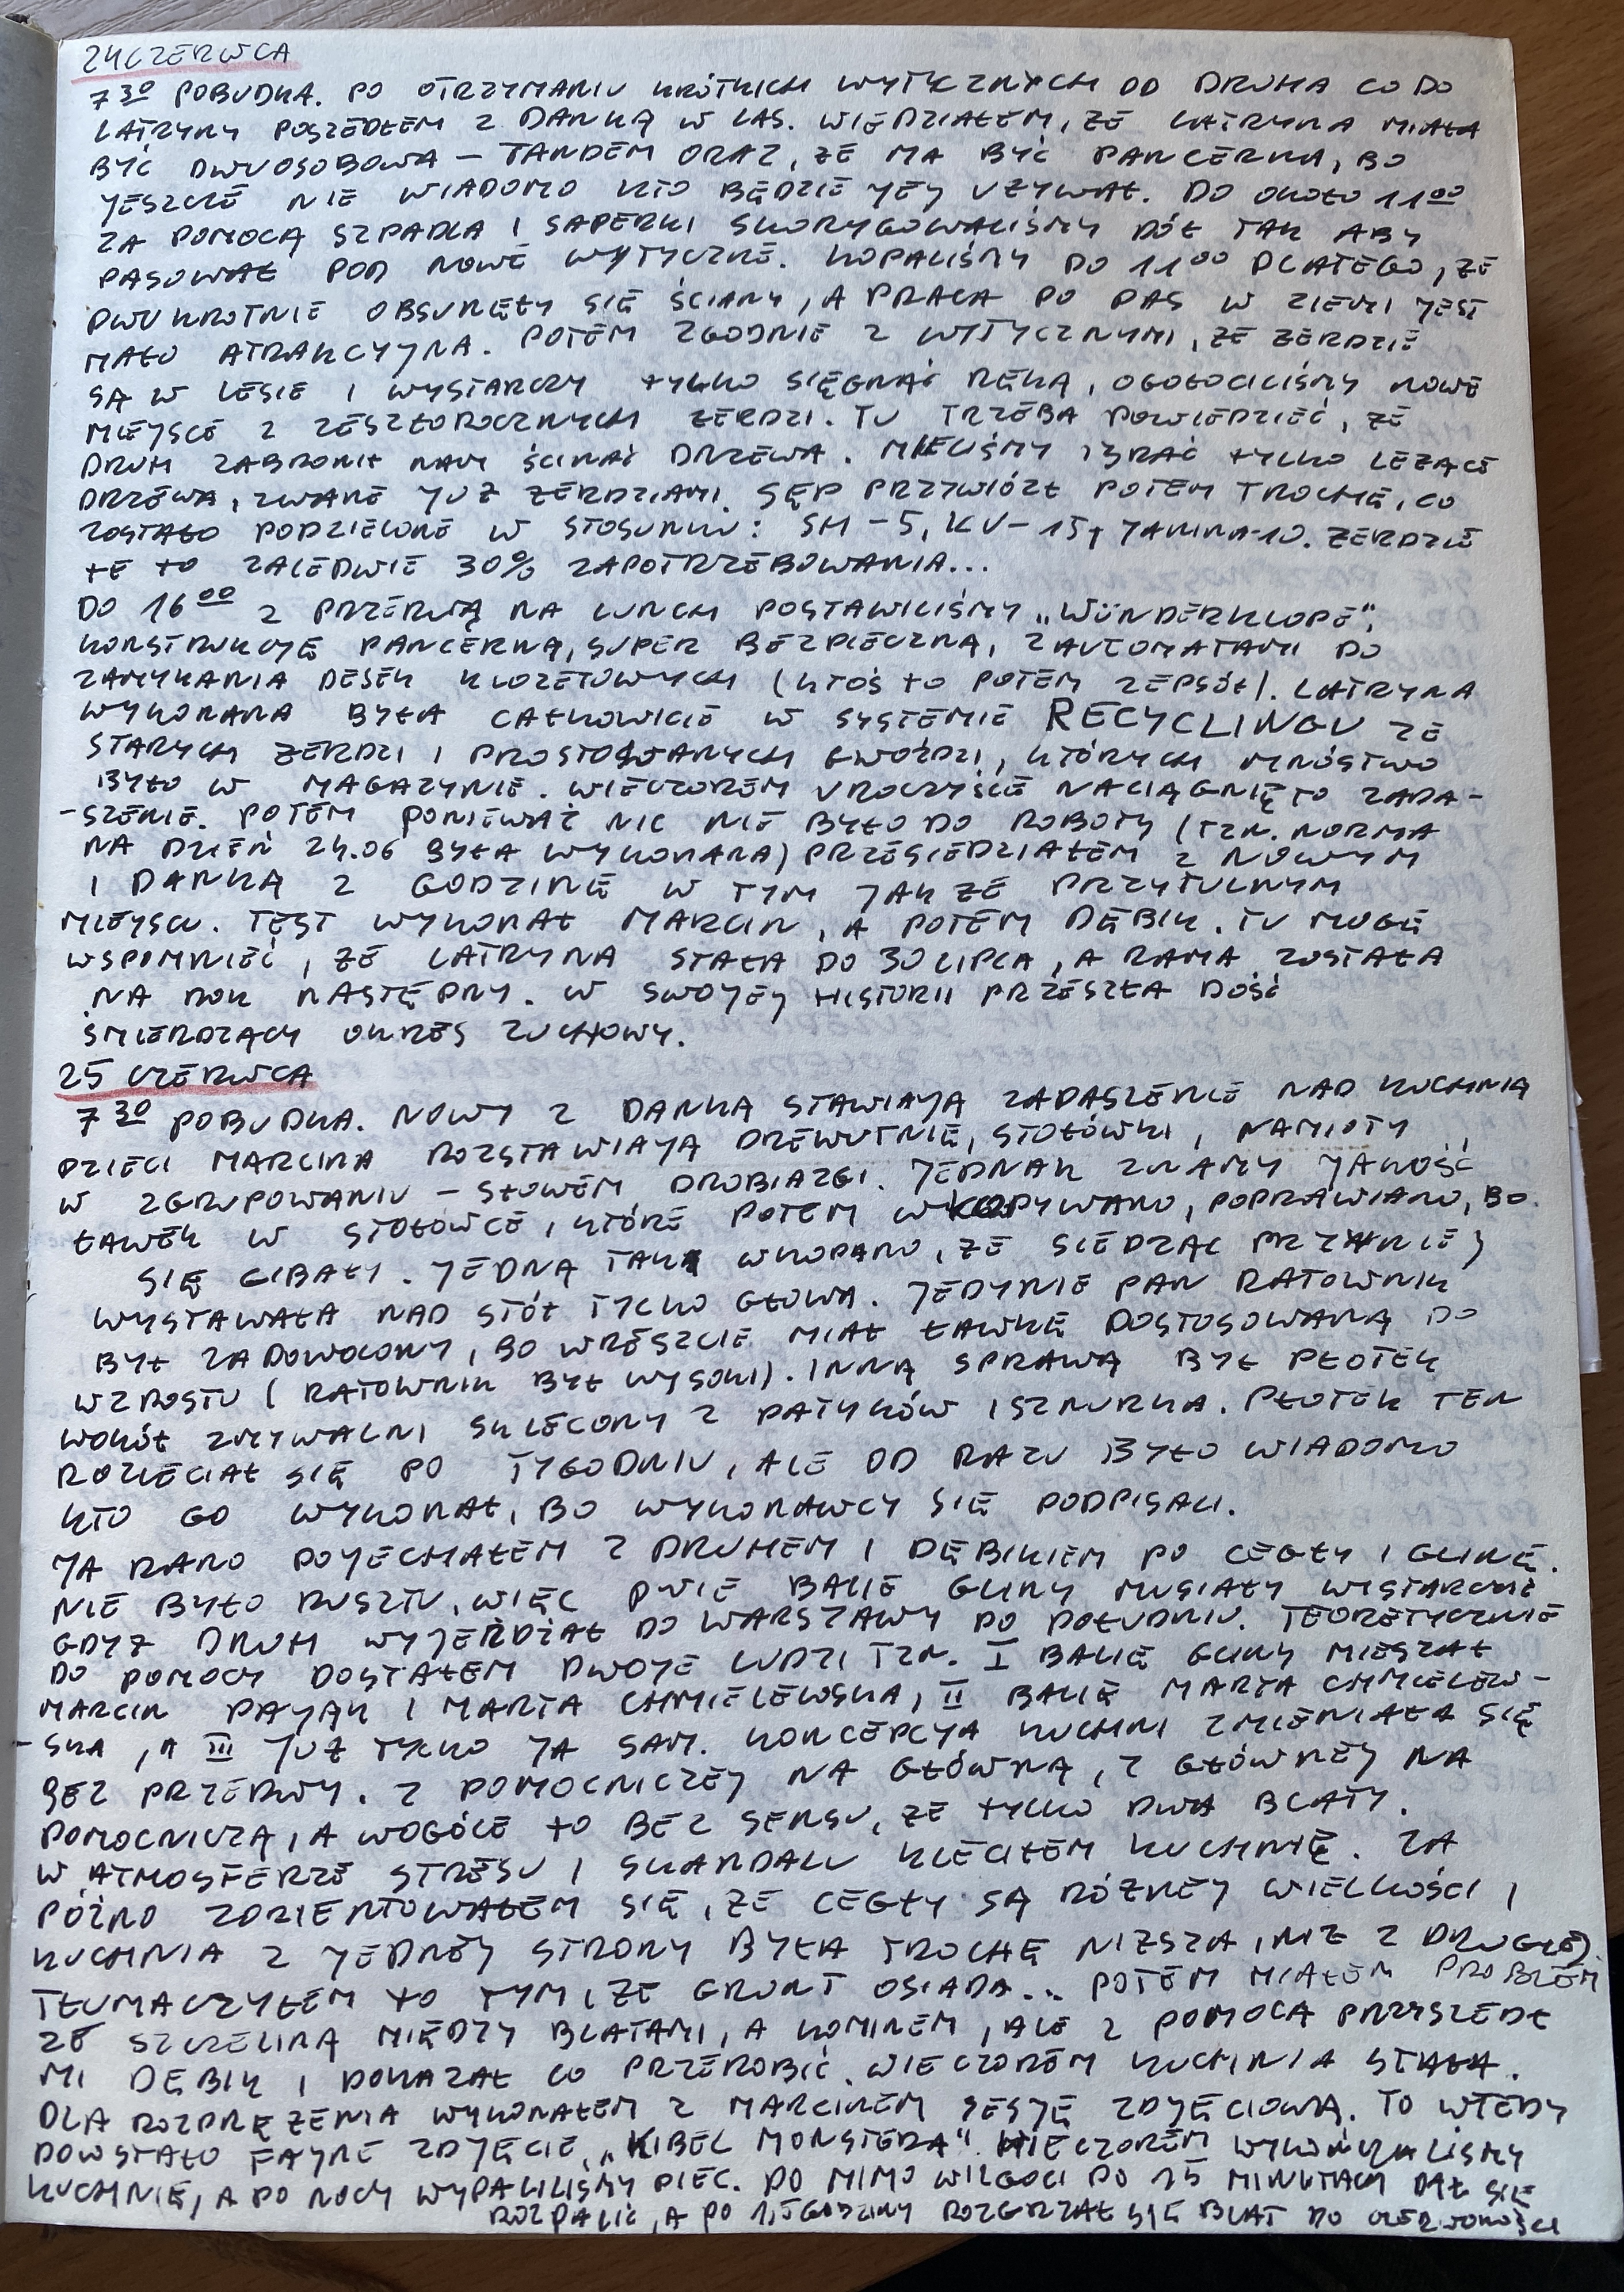 24 CZERWCA
7 30 POBUDKA. PO OTRZYMANIU KRÓTKICH WYTYCZNYCH OD DRUHA CO DO
LATRYNY POSZEDŁEM Z DANKĄ W LAS. WIEDZIAŁEM, ŻE LATRYNA MIAŁA
BYĆ DWUOSOBOWA – TANDEM ORAZ, ŻE MA BYĆ PANCERNA, BO
JESZCZE NIE WIADOMO KTO BĘDZIE JEJ UŻYWAŁ. DO OKOŁO 11 00
ZA POMOCĄ SZPADLA I SAPERKI SKORYGOWALIŚMY DÓŁ TAK ABY
PASOWAŁ POD NOWE WYTYCZNE. KOPALIŚMY DO 11 00 DLATEGO, ŻE
DWUKROTNIE OBSUNĘŁY SIĘ ŚCIANY, A PRACA PO PAS W ZIEMI JEST
MAŁO ATRAKCYJNA. POTEM ZGODNIE Z WYTYCZNYMI, ŻE ŻERDZIE
SĄ W LESIE I WYSTARCZY TYLKO SIĘGNĄĆ RĘKĄ, OGOŁOCILIŚMY NOWE
MIEJSCE Z ZESZŁOROCZNYCH ŻERDZI. TU TRZEBA POWIEDZIEĆ, ŻE
DRUH ZABRONIŁ NAM ŚCINAĆ DRZEWA. MIELIŚMY BRAĆ TYLKO LEŻĄCE
DRZEWA, ZWANE JUŻ ŻERDZIAMI. SĘP PRZYWIÓZŁ POTEM TROCHĘ, CO
ZOSTAŁO PODZIELONE W STOSUNKU: SH – 5, KV – 15, JANINA-10. ŻERDZIE
TE TO ZALEDWIE 30% ZAPOTRZEBOWANIA...
DO 16 00 Z PRZERWĄ NA LUNCH POSTAWILIŚMY „WÜNDERKLOPE",
KONSTRUKCJĘ PANCERNĄ, SUPER BEZPIECZNĄ, Z AUTOMATAMI DO
ZAMYKANIA DESEK KLOZETOWYCH (KTOŚ TO POTEM ZEPSÓŁ). LATRYNA
WYKONANA BYŁA CAŁKOWICIE W SYSTEMIE RECYCLINGU ZE
STARYCH ŻERDZI I PROSTOWANYCH GWOŹDZI, KTÓRYCH MNÓSTWO
BYŁO W MAGAZYNIE. WIECZOREM UROCZYŚCIE NACIĄGNIĘTO ZADA-
-SZENIE. POTEM PONIEWAŻ NIC NIE BYŁO DO ROBOTY (TZN. NORMA
NA DZIEŃ 24.06 BYŁA WYKONANA) PRZESIEDZIAŁEM Z NOWYM
I DANKĄ Z GODZINĘ W TYM JAKŻE PRZYTULNYM
MIEJSCU. TEST WYKONAŁ MARCIN, A POTEM DĘBIK. TU MOGĘ
WSPOMNIEĆ, ŻE LATRYNA STAŁA DO 30 LIPCA, A RAMA ZOSTAŁA
NA ROK NASTĘPNY. W SWOJEJ HISTORII PRZESZŁA DOŚĆ
ŚMIERDZĄCY OKRES ZUCHOWY.
25 CZERWCA
7 30 POBUDKA. NOWY Z DANKĄ STAWIAJĄ ZADASZENIE NAD KUCHNIĄ
DZIECI MARCINA ROZSTAWIAJĄ DREWUTNIĘ, STOŁÓWKI, NAMIOTY
W ZGRUPOWANIU – SŁOWEM DROBIAZGI. JEDNAK ZNAMY JAKOŚĆ
ŁAWEK W STOŁÓWCE, KTÓRE POTEM WKOPYWANO, POPRAWIANO, BO
SIĘ GIBAŁY. JEDNĄ TAK WKOPANO, ŻE SIEDZĄC PRZY NIEJ
WYSTAWAŁA NAD STÓŁ TYLKO GŁOWA. JEDYNIE PAN RATOWNIK
BYŁ ZADOWOLONY, BO WRESZCIE MIAŁ ŁAWKĘ DOSTOSOWANĄ DO
WZROSTU (RATOWNIK BYŁ WYSOKI). INNĄ SPRAWĄ BYŁ PŁOTEK
WOKÓŁ ZMYWALNI SKLECONY Z PATYKÓW I SZNURKA. PŁOTEK TEN
ROZLECIAŁ SIĘ PO TYGODNIU, ALE OD RAZU BYŁO WIADOMO
KTO GO WYKONAŁ, BO WYKONAWCY SIĘ PODPISALI.
JA RANO POJECHAŁEM Z DRUHEM I DĘBIKIEM PO CEGŁY I GLINĘ.
NIE BYŁO RUSZTU, WIĘC DWIE BALIE GLINY MUSIAŁY WYSTARCZYĆ
GDYŻ DRUH WYJEŻDŻAŁ DO WARSZAWY PO POŁUDNIU. TEORETYCZNIE
DO POMOCY DOSTAŁEM DWOJE LUDZI TZN. I BALIĘ GLINY MIESZAŁ
MARCIN PAJĄK I MARTA CHMIELEWSKA, II BALIĘ MARTA CHMIELEW-
-SKA, A III JUŻ TYLKO JA SAM. KONCEPCJA KUCHNI ZMIENIAŁA SIĘ
BEZ PRZERWY. Z POMOCNICZEJ NA GŁÓWNĄ, Z GŁÓWNEJ NA
POMOCNICZĄ, A WOGÓLE TO BEZ SENSU, ŻE TYLKO DWA BLATY.
W ATMOSFERZE STRESU I SKANDALU KLECIŁEM KUCHNIĘ. ZA
PÓŹNO ZORIENTOWAŁEM SIĘ, ŻE CEGŁY SĄ RÓŻNEJ WIELKOŚCI I
KUCHNIA Z JEDNEJ STRONY BYŁA TROCHĘ NIŻSZA, NIŻ Z DRUGIEJ.
TŁUMACZYŁEM TO TYM, ŻE GRUNT OSIADA... POTEM MIAŁEM PROBLEM
ZE SZCZELINĄ MIĘDZY BLATAMI, A KOMINEM, ALE Z POMOCĄ PRZYSZEDŁ
MI DĘBIK I POKAZAŁ CO PRZEROBIĆ. WIECZOREM KUCHNIA STAŁA.
DLA ROZPRĘŻENIA WYKONAŁEM Z MARCINEM SESJĘ ZDJĘCIOWĄ. TO WTEDY
POWSTAŁO FAJNE ZDJĘCIE „KIBEL MONSTERA". WIECZOREM WYKOŃCZALIŚMY
KUCHNIĘ, A PO NOCY WYPALILIŚMY PIEC. PO MIMO WILGOCI PO 15 MINUTACH DAŁ SIĘ
ROZPALIĆ, A PO 1,5 GODZINY ROZGRZAŁ SIĘ BLAT DO CZERWONOŚCI